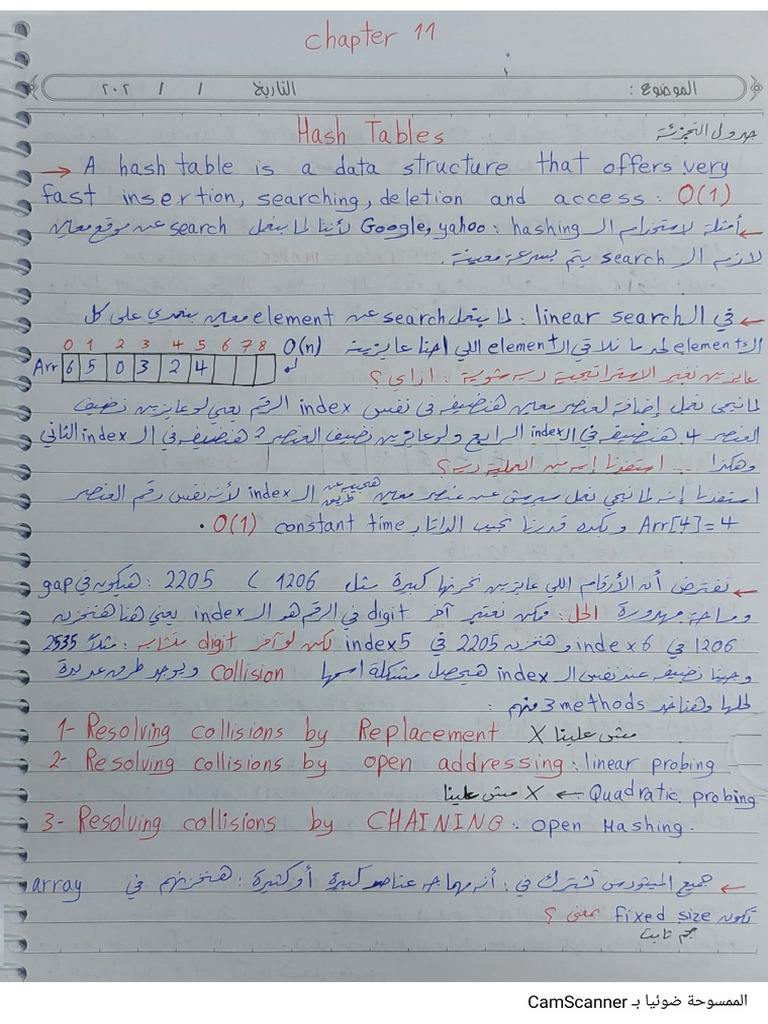 chapter 11
الموضوع : التاريخ / / ٢٠٢
Hash Tables جدول التجزئة
→ A hash table is a data structure that offers very
fast insertion, searching, deletion and access : O(1)
← أمثلة لاستخدام الـ hashing : Google, yahoo لأننا لما بنعمل search عن موقع معين
لازم الـ search يتم بسرعة معينة .
← في الـ linear search : لما بنعمل search عن element معين بنعدي على كل
الـ elements لحد ما نلاقي الـ element اللي احنا عايزينه O(n)
0 1 2 3 4 5 6 7 8
Arr 6 5 0 3 2 4
عايزين نغير الاستراتيجية دي شوية : ازاي ؟
لما نيجي نعمل إضافة لعنصر معين هنضيفه في نفس index الرقم يعني لو عايزين نضيف
العنصر 4 هنضيفه في الـ index الرابع ولو عايزين نضيف العنصر 2 هنضيفه في الـ index الثاني
وهكذا ... استفدنا إيه من العملية دي ؟
استفدنا إنه لما نيجي نعمل سيرش عن عنصر معين هنجيبه عن طريق الـ index لأنه نفس رقم العنصر
Arr[4]=4 وبكده قدرنا نجيب الداتا بـ constant time O(1) .
← نفترض أن الأرقام اللي عايزين نخزنها كبيرة مثل 1206 ، 2205 : هيكون في gap
ومساحة مهدورة الحل : ممكن نعتبر آخر digit في الرقم هو الـ index يعني هنا هنخزن
1206 في index 6 وهنخزن 2205 في index 5 لكن لو آخر digit متشابه : مثلاً 2535
وجينا نضيفه عند نفس الـ index هيحصل مشكلة اسمها collision ويوجد طرق عديدة
لحلها وهناخد 3 methods منهم :
1- Resolving collisions by Replacement X مش علينا
2- Resolving collisions by open addressing : linear probing
مش علينا X ← Quadratic probing
3- Resolving collisions by CHAINING : open Hashing.
← جميع الميثودس تشترك في : أنه مهما جه عناصر كبيرة أو كثيرة : هنخزنهم في array
تكون fixed size بمعنى ؟
حجم ثابت
الممسوحة ضوئيا بـ CamScanner